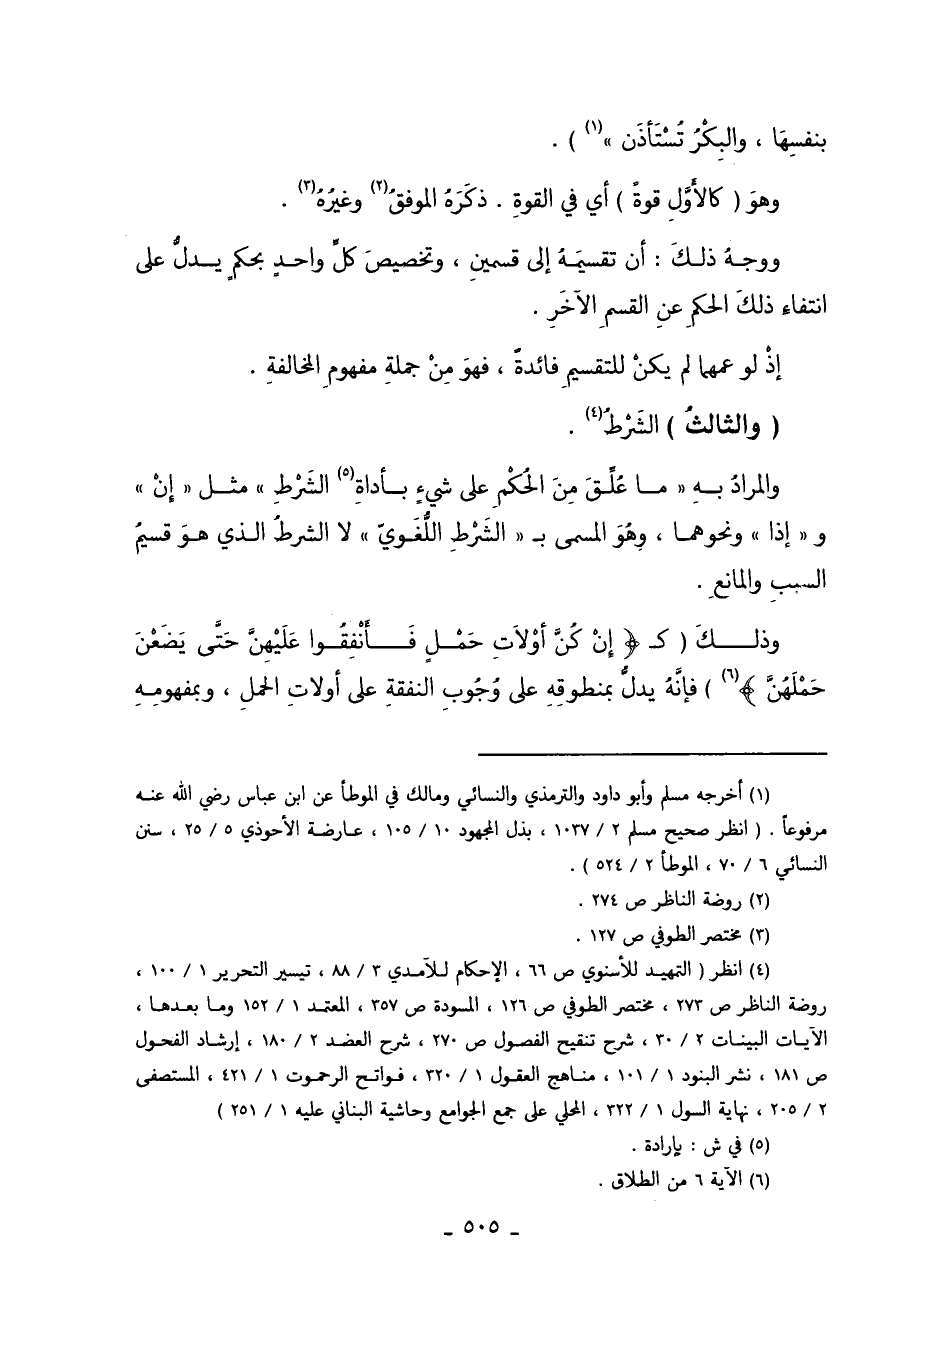 بنفسِهَا ، والبِكْرُ تُسْتَأذَن »(١) ) .
وهوَ ( كالأوَّلِ قوةً ) أي في القوةِ . ذكَرَهُ الموفقُ(٢) وغيرُهُ(٣) .
ووجهُ ذلكَ : أن تقسيمَهُ إلى قسمينِ ، وتخصيصَ كلِّ واحدٍ بحكمٍ يدلُّ على
انتفاء ذلكَ الحكمِ عنِ القسمِ الآخَرِ .
إذْ لو عمهما لم يكنْ للتقسيمِ فائدةٌ ، فهوَ مِنْ جملةِ مفهومِ المخالفةِ .
( والثالثُ ) الشَرْطُ(٤) .
والمرادُ بهِ « ما عُلِّقَ مِنَ الحُكْمِ على شيءٍ بأداةِ(٥) الشَرْطِ » مثل « إنْ »
و « إذا » ونحوهما ، وهُوَ المسمى بـ « الشَرْطِ اللُّغَويّ » لا الشرطُ الذي هوَ قسيمُ
السببِ والمانعِ .
وذلكَ ( كـ ﴿ إنْ كُنَّ أوْلَاتِ حَمْلٍ فَأنْفِقُوا عَلَيْهِنَّ حَتَّى يَضَعْنَ
حَمْلَهُنَّ ﴾(٦) ) فإنَّهُ يدلُّ بمنطوقِهِ على وُجُوبِ النفقةِ على أولاتِ الحملِ ، وبمفهومِهِ
(١) أخرجه مسلم وأبو داود والترمذي والنسائي ومالك في الموطأ عن ابن عباس رضي الله عنه
مرفوعاً . ( انظر صحيح مسلم ٢ / ١٠٣٧ ، بذل المجهود ١٠ / ١٠٥ ، عارضة الأحوذي ٥ / ٢٥ ، سنن
النسائي ٦ / ٧٠ ، الموطأ ٢ / ٥٢٤ ) .
(٢) روضة الناظر ص ٢٧٤ .
(٣) مختصر الطوفي ص ١٢٧ .
(٤) انظر ( التمهيد للأسنوي ص ٦٦ ، الإحكام للآمدي ٣ / ٨٨ ، تيسير التحرير ١ / ١٠٠ ،
روضة الناظر ص ٢٧٣ ، مختصر الطوفي ص ١٢٦ ، المسودة ص ٣٥٧ ، المعتمد ١ / ١٥٢ وما بعدها ،
الآيات البينات ٢ / ٣٠ ، شرح تنقيح الفصول ص ٢٧٠ ، شرح العضد ٢ / ١٨٠ ، إرشاد الفحول
ص ١٨١ ، نشر البنود ١ / ١٠١ ، مناهج العقول ١ / ٣٢٠ ، فواتح الرحموت ١ / ٤٢١ ، المستصفى
٢ / ٢٠٥ ، نهاية السول ١ / ٣٢٢ ، المحلي على جمع الجوامع وحاشية البناني عليه ١ / ٢٥١ )
(٥) في ش : بإرادة .
(٦) الآية ٦ من الطلاق .
ـ ٥٠٥ ـ